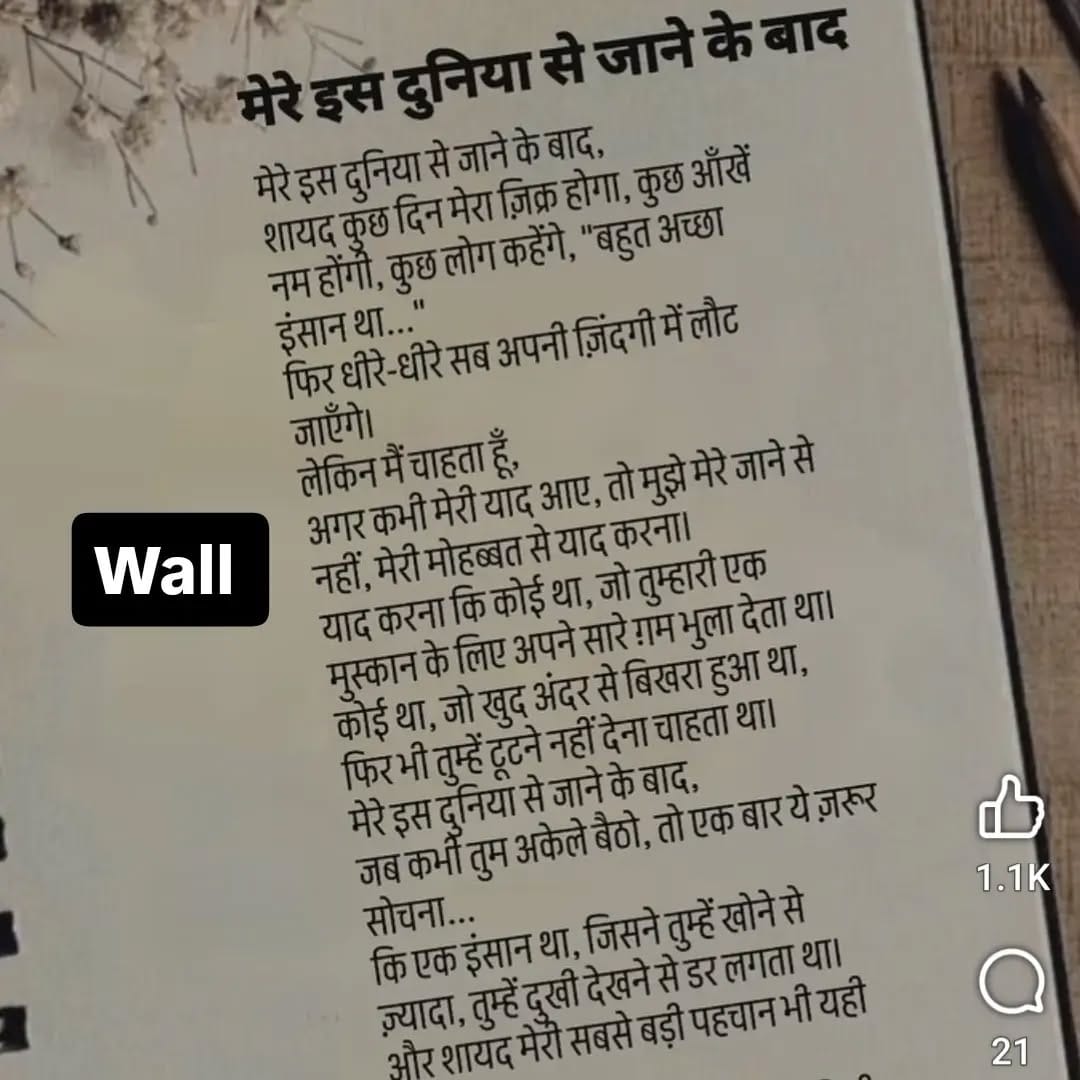 मेरे इस दुनिया से जाने के बाद
मेरे इस दुनिया से जाने के बाद,
शायद कुछ दिन मेरा ज़िक्र होगा, कुछ आँखें
नम होंगी, कुछ लोग कहेंगे, "बहुत अच्छा
इंसान था..."
फिर धीरे-धीरे सब अपनी ज़िंदगी में लौट
जाएँगे।
लेकिन मैं चाहता हूँ,
अगर कभी मेरी याद आए, तो मुझे मेरे जाने से
नहीं, मेरी मोहब्बत से याद करना।
याद करना कि कोई था, जो तुम्हारी एक
मुस्कान के लिए अपने सारे ग़म भुला देता था।
कोई था, जो खुद अंदर से बिखरा हुआ था,
फिर भी तुम्हें टूटने नहीं देना चाहता था।
मेरे इस दुनिया से जाने के बाद,
जब कभी तुम अकेले बैठो, तो एक बार ये ज़रूर
सोचना...
कि एक इंसान था, जिसने तुम्हें खोने से
ज़्यादा, तुम्हें दुखी देखने से डर लगता था।
और शायद मेरी सबसे बड़ी पहचान भी यही
Wall
1.1K
21